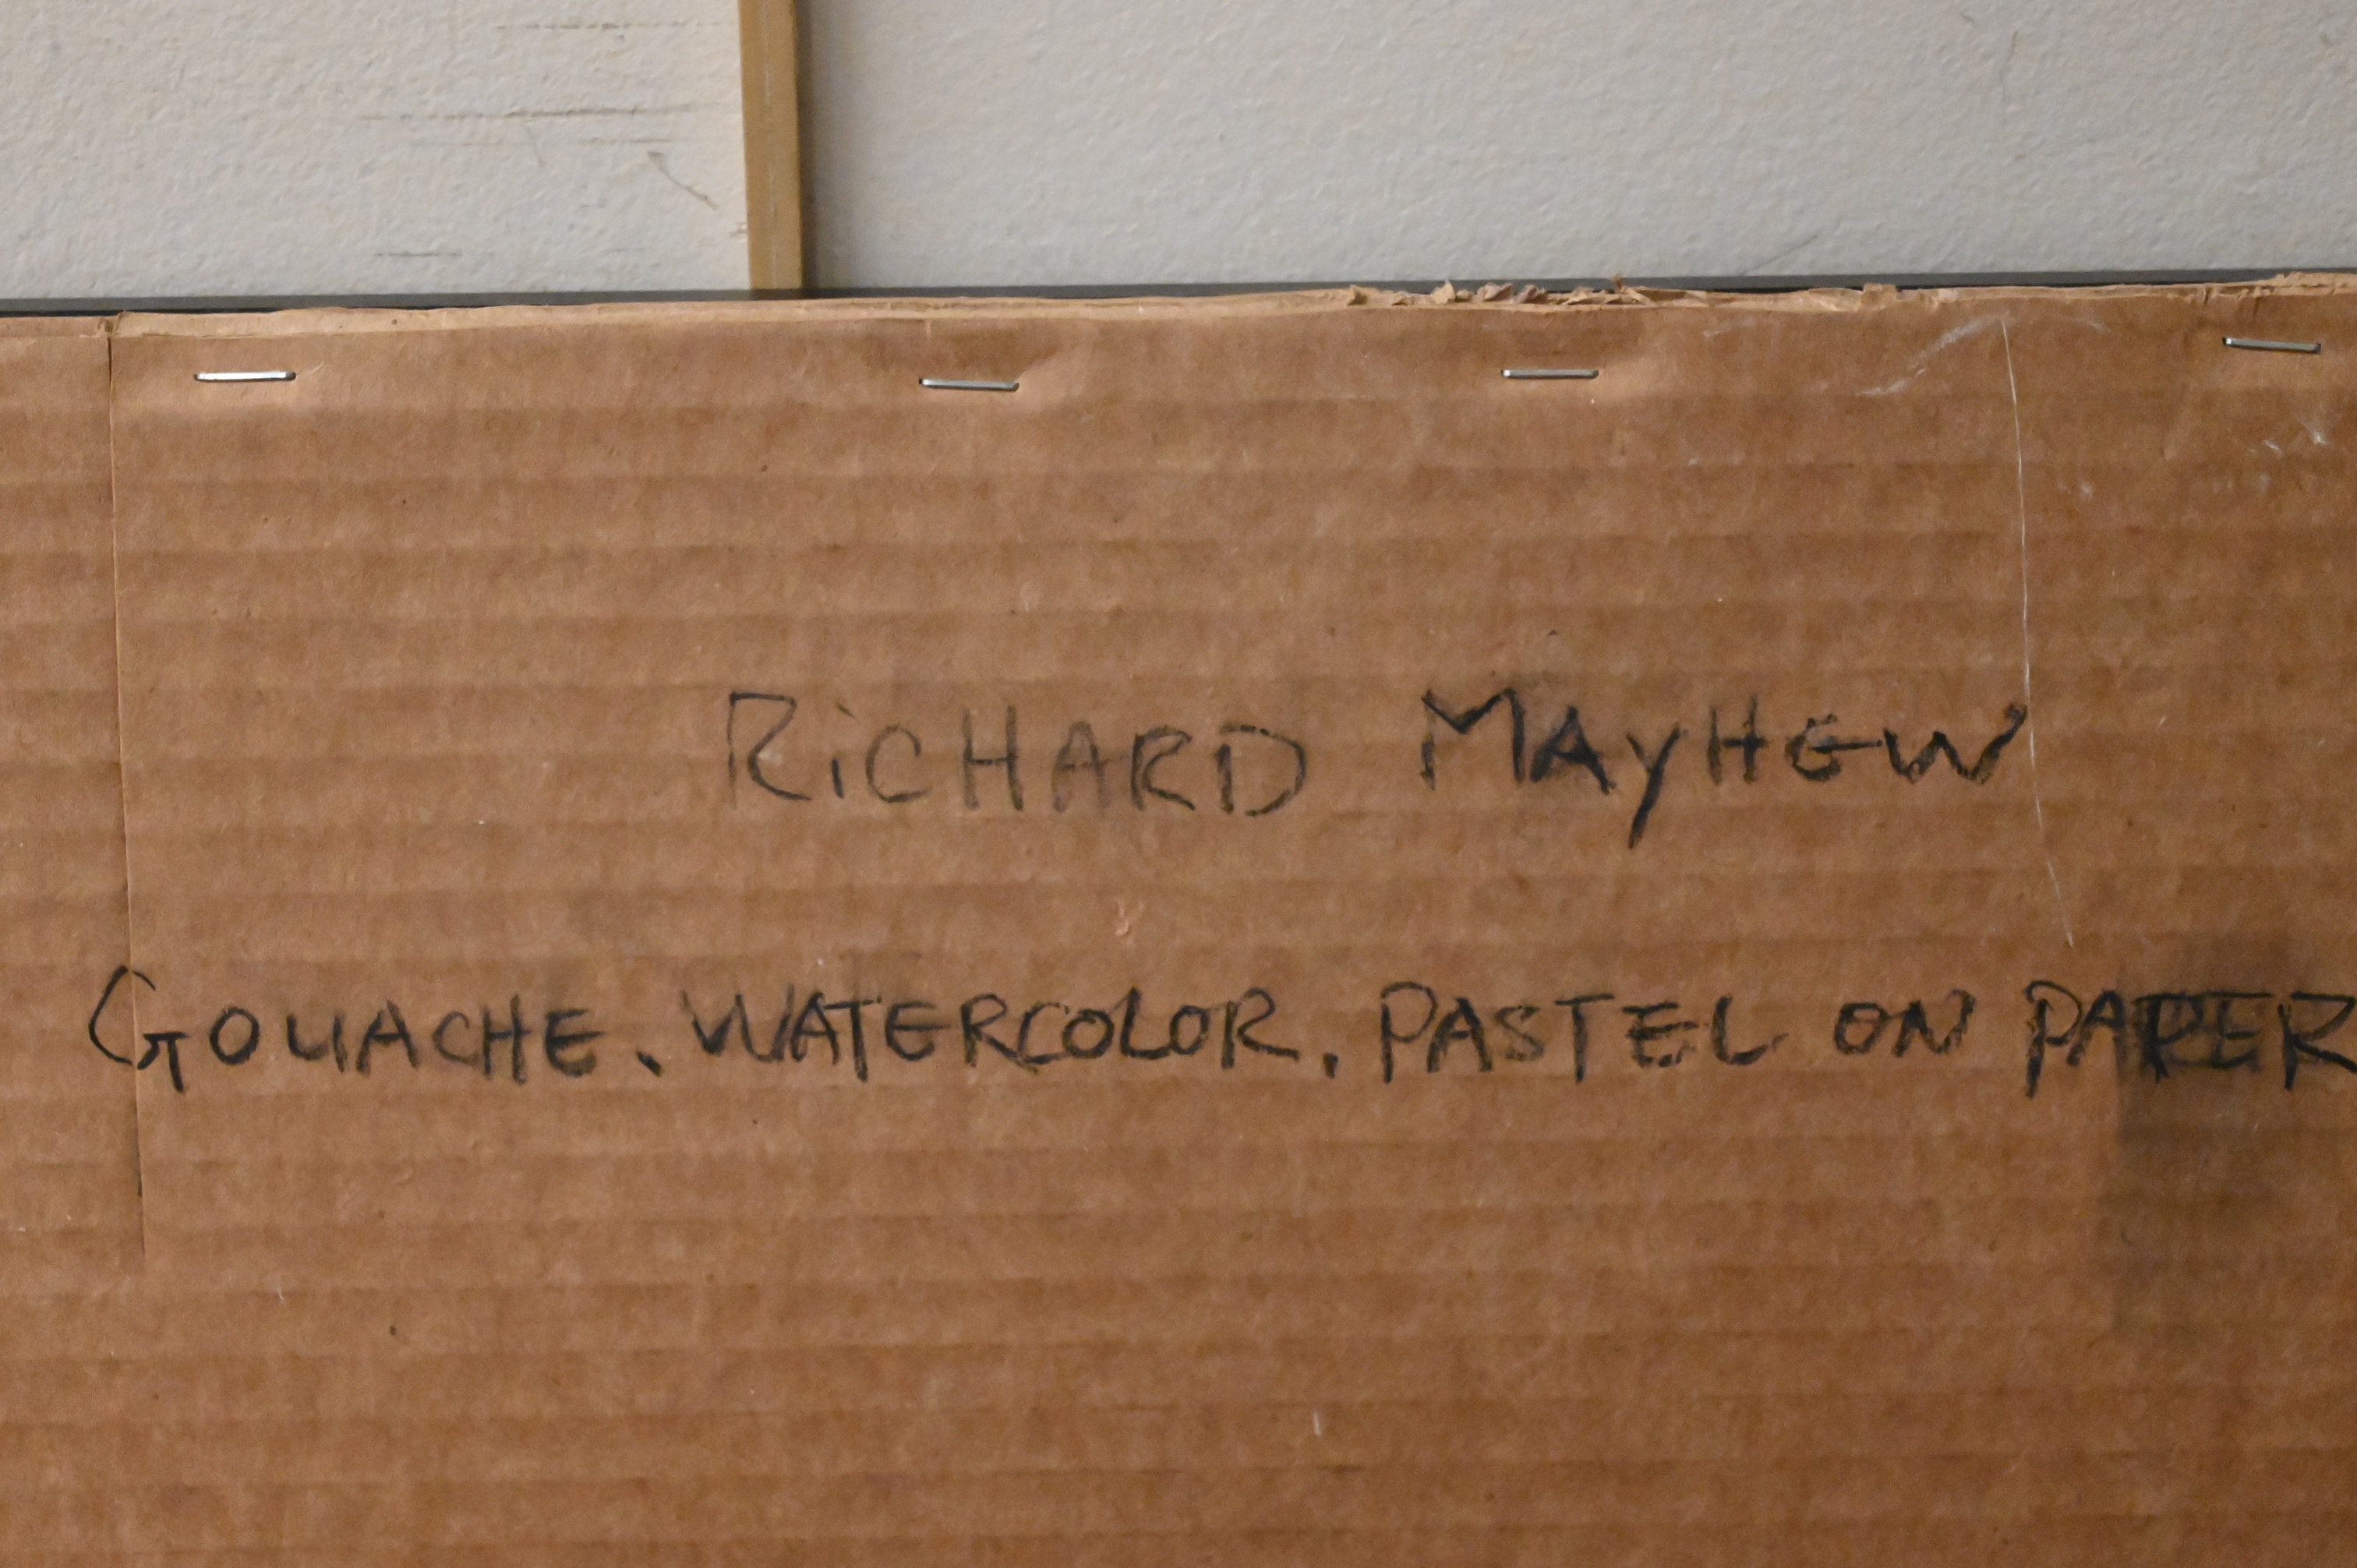 RiCHARD MAyHEW
GOUACHE. WATERCOLOR. PASTEL ON PAPER